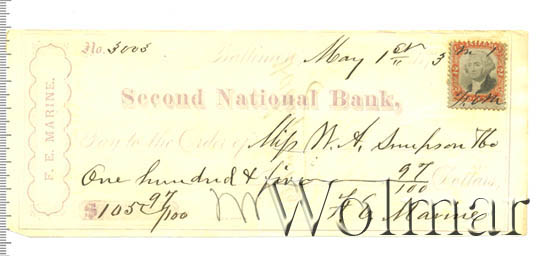 No. 3003
Baltimore, May 1st 3
Second National Bank,
Pay to the Order of Miss W. A. Simpson & Co
One hundred & five 97/100 Dollars,
$105 97/100 F. E. Marine
F. E. MARINE.
Wolmar